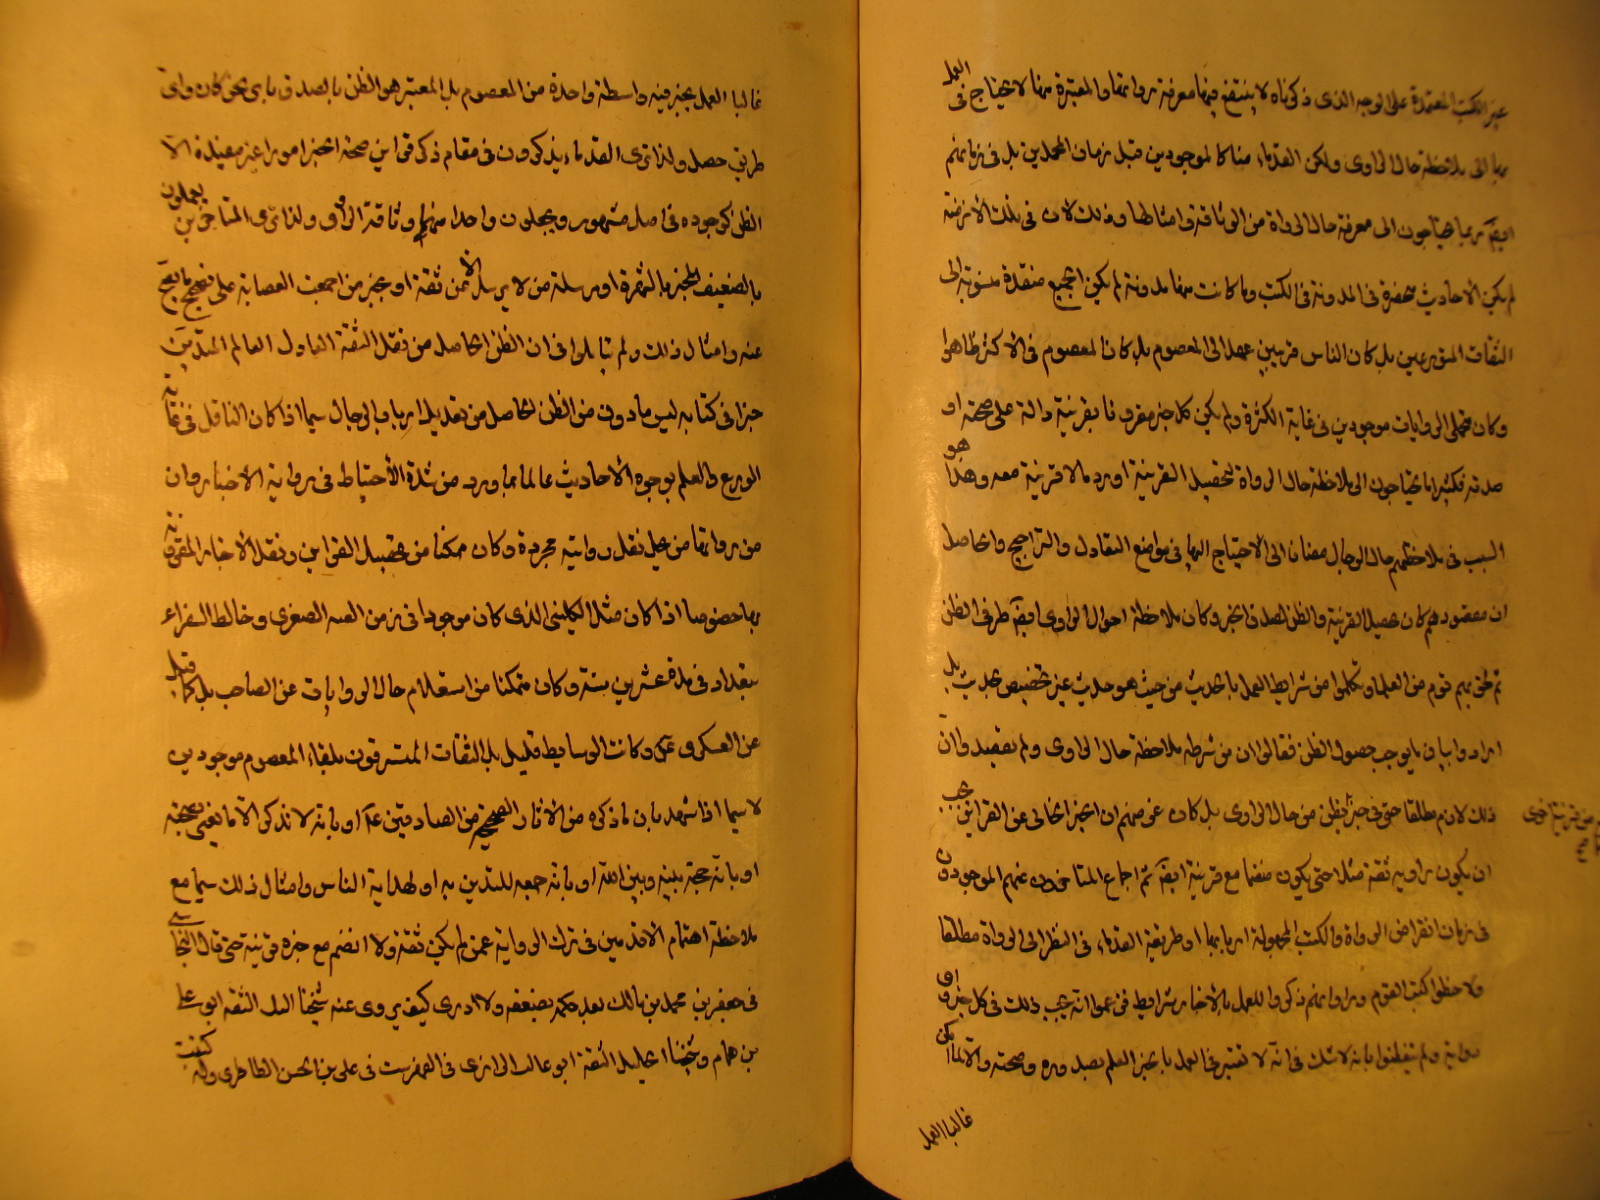 غير الكتب المعتمدة على الوجه الذى ذكرناه لا ينتفع فيها معرفة رواتها والمعتبرة منها لا يحتاج فى العمل
بها الى ملاحظة حال الراوى ولكن القدماء منا كالموجودين قبل زمان المحمدين بل فى زمانهم
ايضا ربما يحتاجون الى معرفة حال الرواة من الوثاقة وامثالها وذلك لان فى تلك الازمنة
لم يكن الاحاديث محصورة فى المدونة فى الكتب وما كانت منها مدونة لم يكن الجميع منقدة منسوبة الى
الثقات المتورعين بل كان الناس قريبين عهد الى المعصوم بل كان المعصوم فى الاكثر ظاهرا
وكان محملى الروايات موجودين فى غاية الكثرة ولم يكن كل خبر مقرونا بقرينة دالة على صحته او
صدقه فكثيرا ما يحتاجون الى ملاحظة حال الرواة لتحصيل القرينة او رد ما لا قرينة معه وهذا هو
السبب فى ملاحظتهم حال الرجال مضافا الى الاحتياج اليها فى مواضع التعادل والتراجيح والحاصل
ان مقصودهم كان تحصيل القرينة والظن لصدق الخبر وكان ملاحظة احوال الراوى ايضا طرق الظن
ثم لحق بهم قوم من العلماء وتكلموا من شرايط العمل بالحديث من حيث هو حديث غير تخصيص بحديث بل
ارادوا بيان ما يوجب حصول الظن فقالوا ان من شرطه ملاحظة حال الراوى ولم نقصد وان
ذلك لازم مطلقا حتى فى خبر يظن من حال الراوى بل كان غرضهم ان الخبر الخالى عن القراين يجب
من قرينة اخرى
ان يكون راويه ثقة مثلا حتى يكون منضما مع قرينة ايضا ثم اجاع المتاخرون عنهم الموجودون
فى زمان انقراض الرواة والكتب المجهولة اربابها او طريقة القدماء فى النظر الى الرواة مطلقا
ولاحظوا كتب القوم وراوا انهم ذكروا للعمل بالاخبار شرايط فزعموا انه يجب ذلك فى كل خبر او
رواية ولم يتفطنوا بانه لا شك فى انه لا تعتبر فى العمل بالخبر العلم بصدوره وصحته والا لما امكن
غالبا العمل
غالبا العمل بخبر فيه واسطة واحدة من المعصوم بل المعتبر هو الظن بالصدق باى نحو كان واى
طريق حصل ولذا ترى القدماء يذكرون فى مقام ذكر قراين صحة الخبر امورا غير مفيدة الا
الظن كوجوده فى اصل مشهور ويجعلون واحدا منها وثاقة الراوى ولذا ترى المتاخرين يعملون
بالضعيف المنجبر بالشهرة او مرسلة من لا يرسل الا عن ثقة او بخبر من اجمعت العصابة على تصحيح ما يصح
عنه وامثال ذلك ولم يتاملوا فى ان الظن الحاصل من نقل الثقة العادل العالم المتدين
خبرا فى كتابه ليس مادون من الظن الحاصل من تعديل ارباب الرجال سيما اذا كان الناقل فى غاية
الورع والعلم بوجوه الاحاديث عالما بما ورد من شدة الاحتياط فى رواية الاخبار وان
من رواتها من يحل نقل روايته مجردة وكان ممكنا من تحصيل القراين ونقل الاخبار المقرونة
بها خصوصا اذا كان مثل الكلينى الذى كان موجودا فى زمن الغيبة الصغرى وخالط السفراء
ببغداد فى مدة عشرين سنة وكان متمكنا من استعلام حال الروايات عن الصاحب بل كما قيل
عن العسكرى ع وكانت الوسايط قليل بل الثقات المتشرفون بلقاء المعصوم موجودين
لا سيما اذا شهد بان ما ذكره من الاثار الصحيحة من الصادقين ع او بانه لا نذكر الا ما يفتى بصحته
او بانه حجة بينه وبين الله او بانه جمعه للتدين به او لهداية الناس وامثال ذلك سيما مع
ملاحظة اهتمام الاقدمين فى ترك الرواية عمن لم يكن ثقة ولا انضم مع خبره قرينة حتى قال النجاشى
فى جعفر بن محمد بن مالك بعد حكمه بضعفه ولا ادرى كيف يروى عنه شيخنا النبيل الثقة ابو على
بن همام وشيخنا الجليل الثقة ابو غالب الرازى فى الفهرست فى على بن الحسن الطاطرى وله كتب